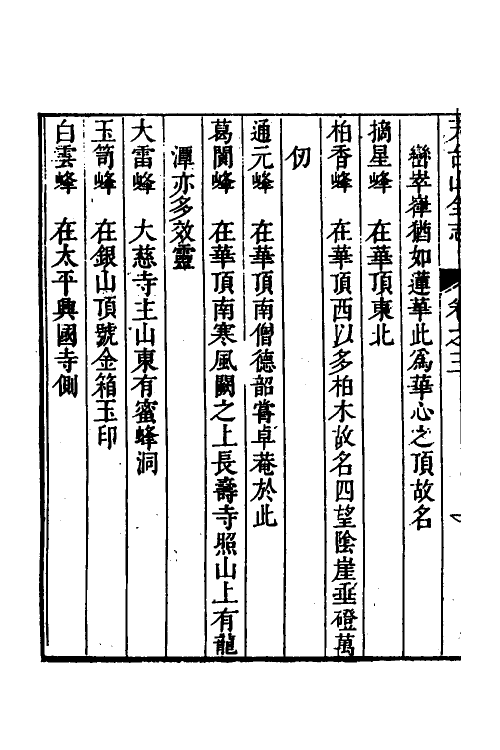 天台山全志 卷之三
巒崒嵂猶如蓮華此爲華心之頂故名
摘星峰　在華頂東北
柏香峰　在華頂西以多柏木故名四望陰崖垂磴萬
仞
通元峰　在華頂南僧德韶嘗卓菴於此
葛閬峰　在華頂南寒風闕之上長壽寺照山上有龍
潭亦多效靈
大雷峰　大慈寺主山東有蜜蜂洞
玉笥峰　在銀山頂號金箱玉印
白雲峰　在太平興國寺側